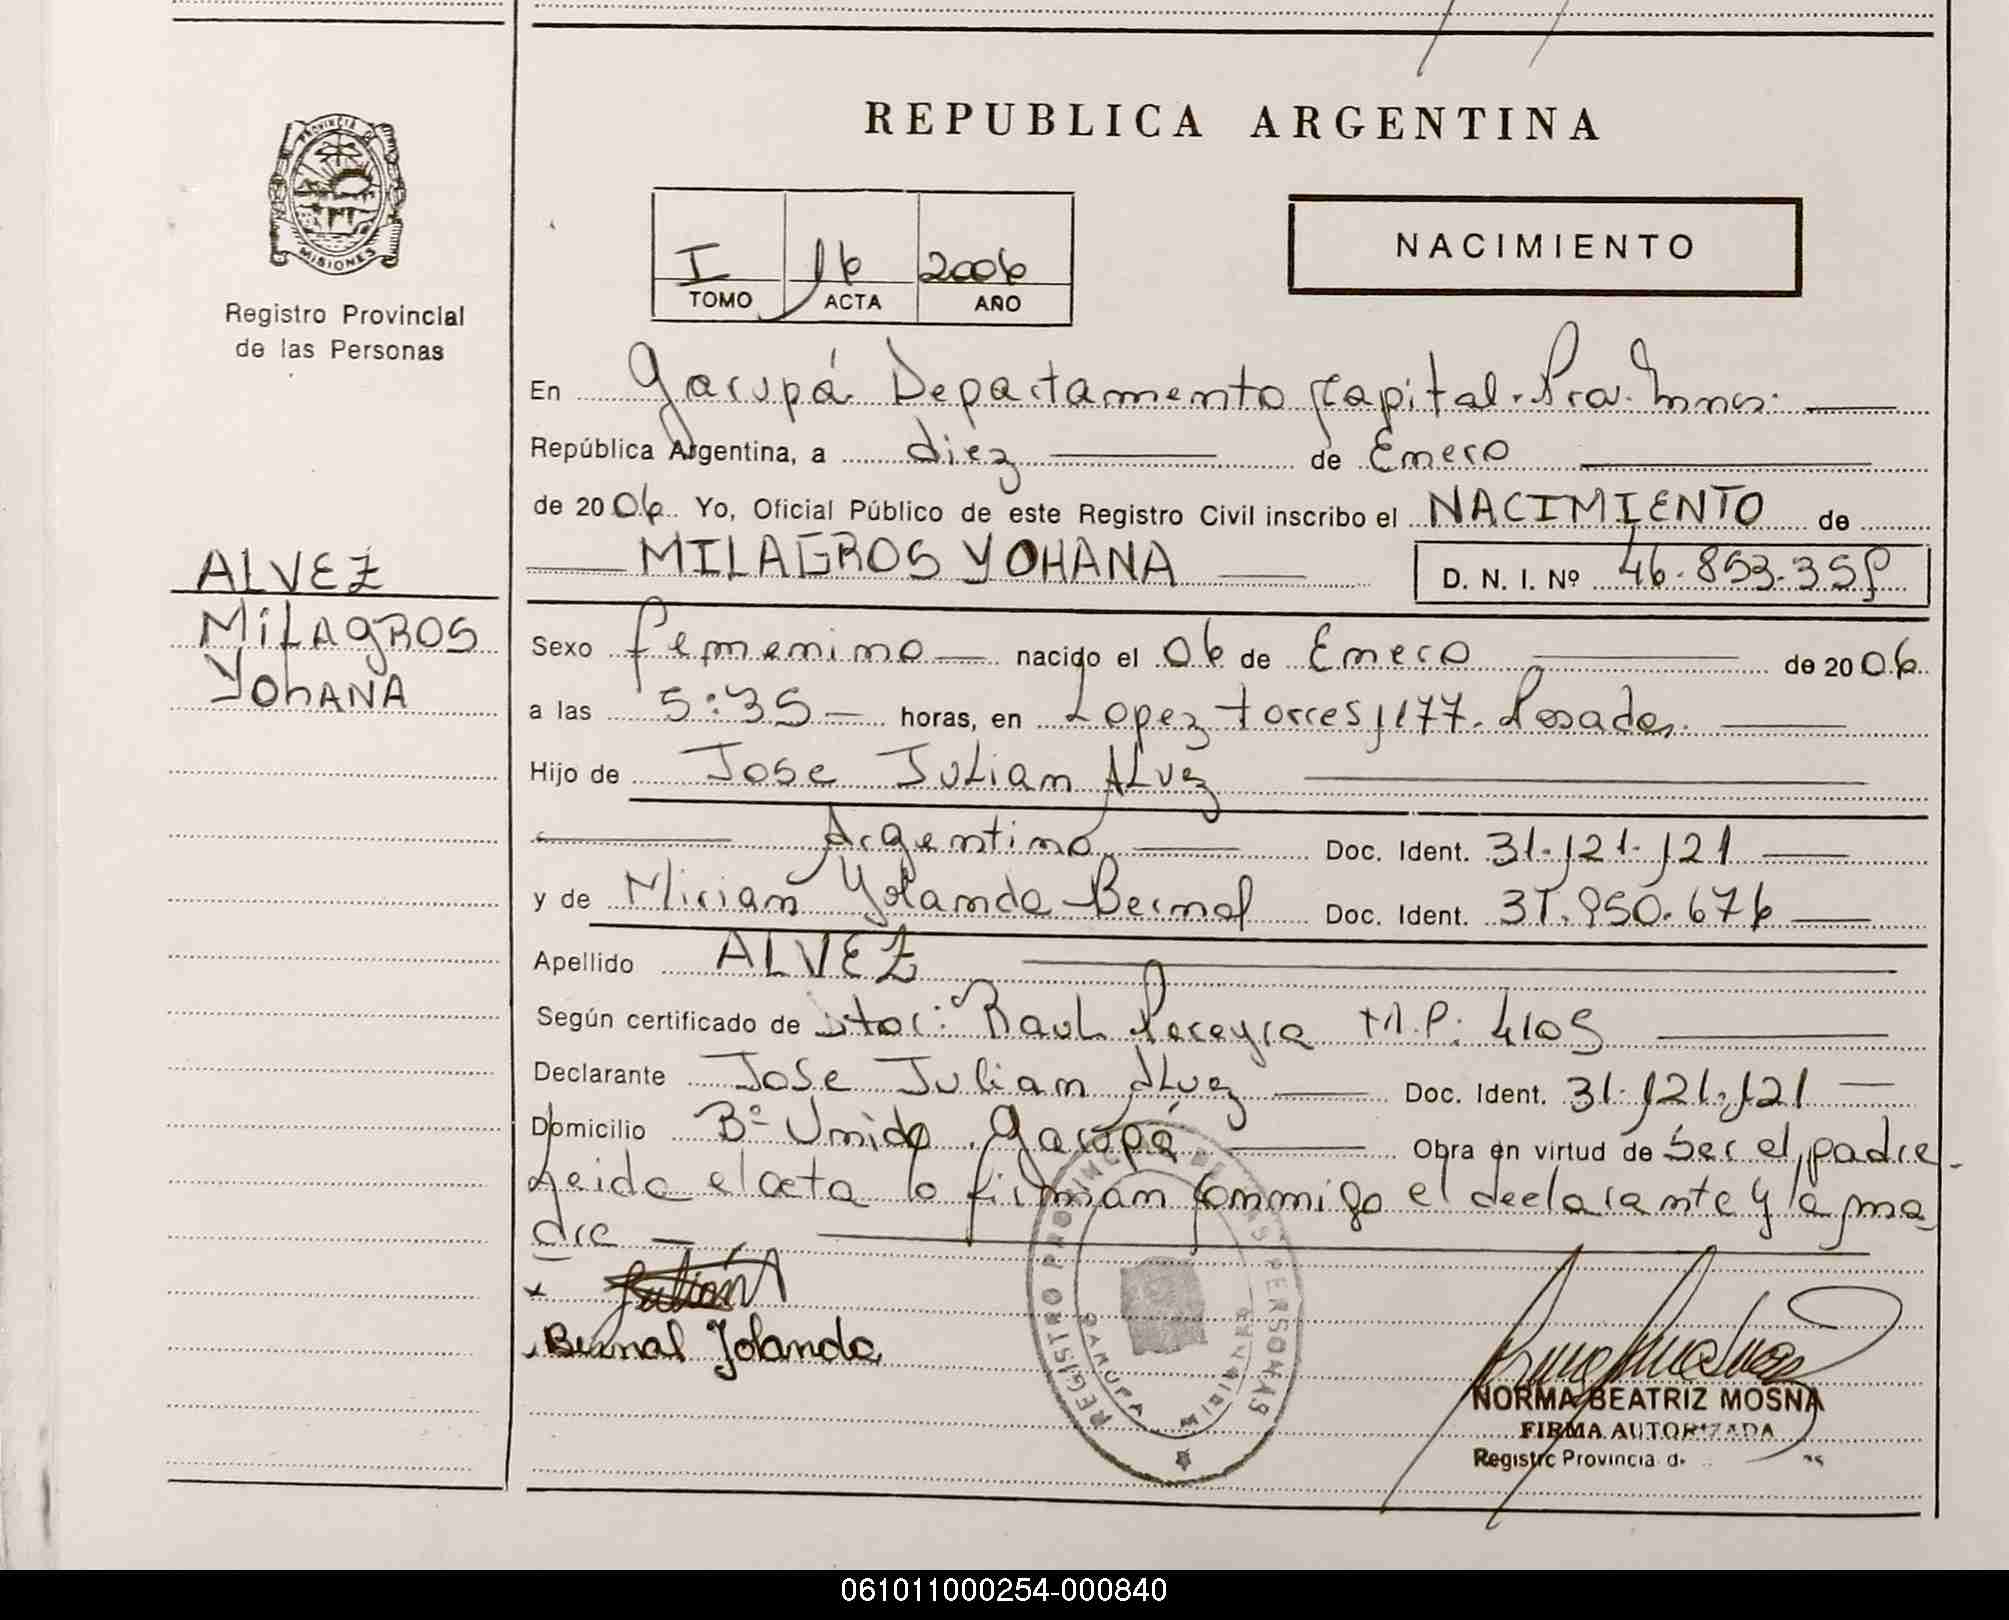 PROVINCIA DE
MISIONES
Registro Provincial
de las Personas
ALVEZ
MILAGROS
YOHANA
REPUBLICA ARGENTINA
I 16 2006
TOMO ACTA AÑO
NACIMIENTO
En Garupá Departamento Capital. Prov. Mnes.
República Argentina, a diez de Enero
de 2006 Yo, Oficial Público de este Registro Civil inscribo el NACIMIENTO de
MILAGROS YOHANA D. N. I. Nº 46.853.35
Sexo femenino nacido el 06 de Enero de 2006
a las 5:35 horas, en Lopez torres 1177. Posadas.
Hijo de Jose Julian ALvez
Argentino Doc. Ident. 31.121.121
y de Mirian Yolanda Bernal Doc. Ident. 31.950.676
Apellido ALVEZ
Según certificado de Raul Pereyra M.P: 4105
Declarante Jose Julian ALvez Doc. Ident. 31.121.121
Domicilio Bº Unido Garupá Obra en virtud de Ser el padre
Leida el acta lo firman conmigo el declarante y la ma
dre
Julián A
Bernal Yolanda
REGISTRO PROVINCIAL DE LAS PERSONAS
GARUPA MISIONES
NORMA BEATRIZ MOSNA
FIRMA AUTORIZADA
Registro Provincial de
061011000254-000840